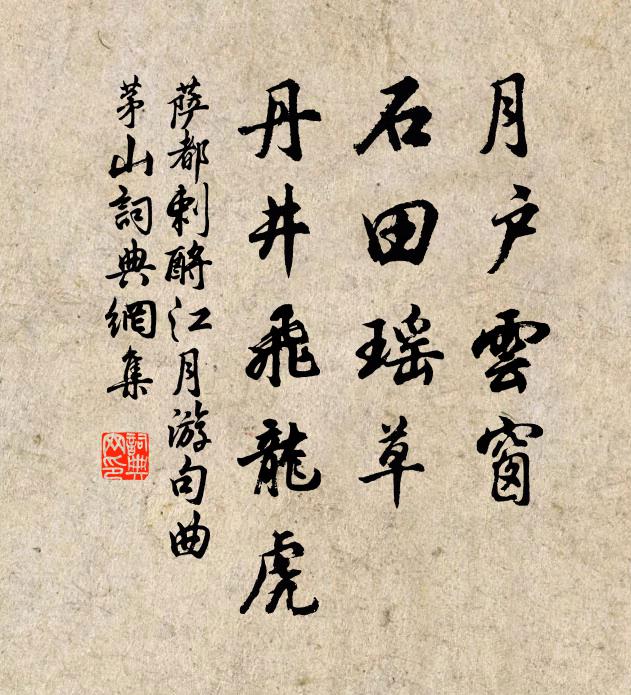 月户雲窗
石田瑶草
丹井飛龍虎
薩都剌酹江月游句曲
茅山詞典網集
詞典網印